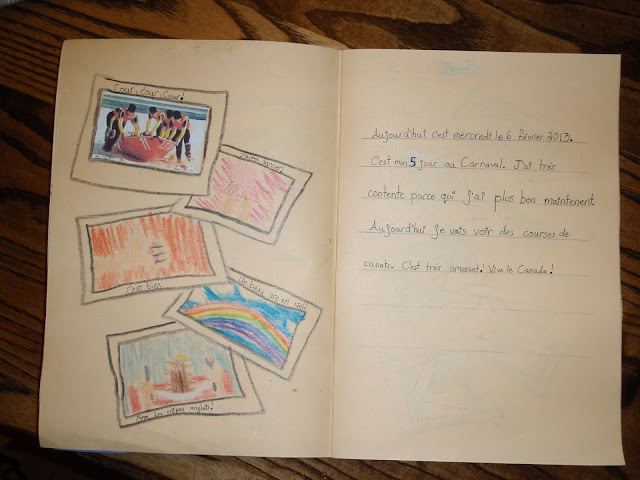 Cour, cour, cour!
C'est bien
Un beau arc en ciel!
Aujourd'hui c'est mercredi le 6 février 2013.
C'est mon 5 jour au Carnaval. J'ai trés
contente parce qui j'ai plus bon maintenent
Aujourd'hui je vais voir des courses de
canotr. C'est trés amosant! Vive le Canada!